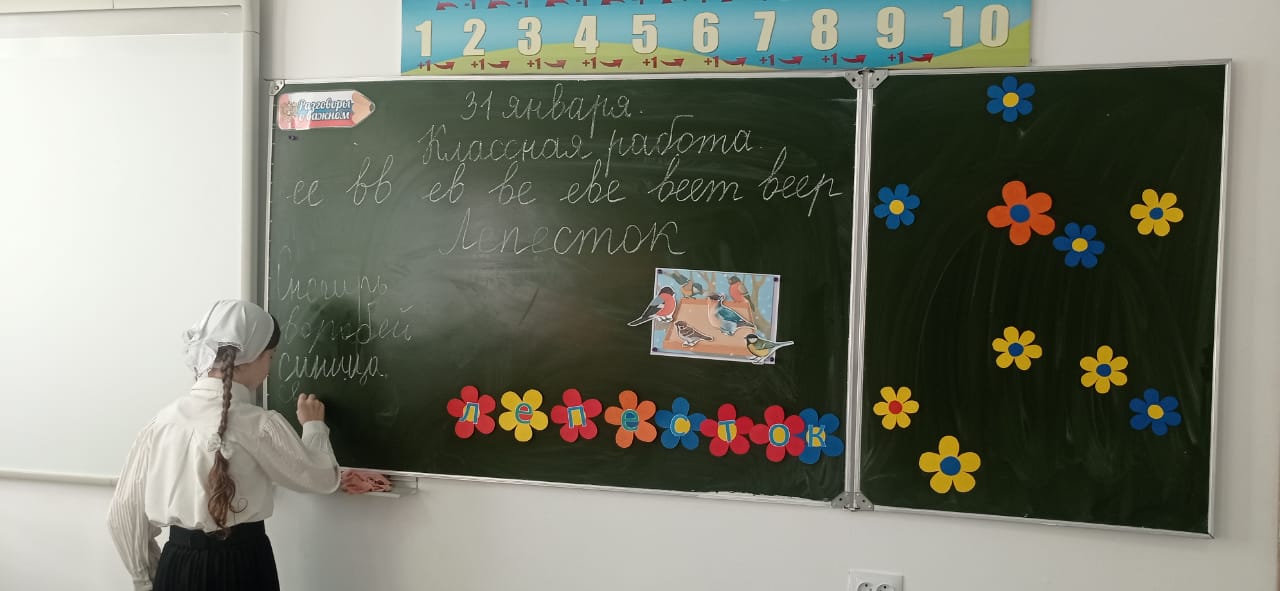 1 2 3 4 5 6 7 8 9 10
+1 +1 +1 +1 +1 +1 +1 +1 +1
Разговоры
о важном
31 января.
Классная работа.
ее вв ев ве еве веет веер
Лепесток
Снегирь
воробей
синица
лепесток